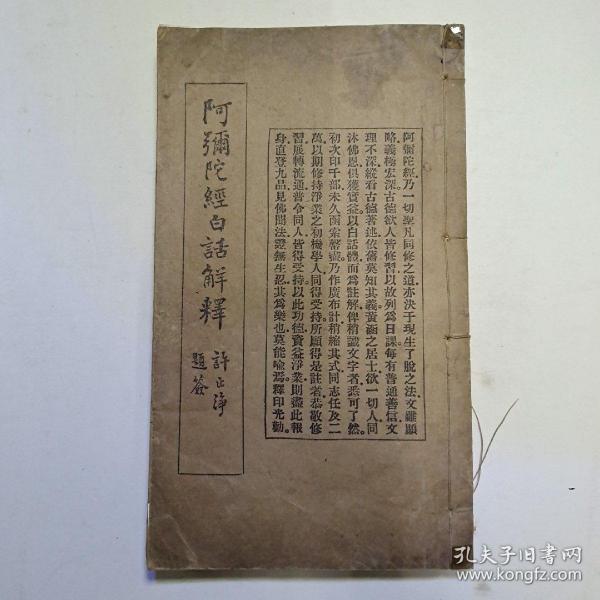 阿彌陀經.乃一切聖凡同修之道.亦決于現生了脫之法.文雖顯
略.義極宏深.古德欲人皆修習.以故列爲日課.每有普通善信.文
理不深.縱看古德著述.依舊莫知其義.黃涵之居士.欲一切人同
沐佛恩.俱獲實益.以白話體而爲註解.俾稍識文字者.悉可了然。
初次印千部.未久函索罄盡.乃作廣布計.稍縮其式.同志任及二
萬.以期修持淨業之初機學人.同得受持.所願得是註者.恭敬修
習.展轉流通.普令同人.皆得受持.以此功德.資益淨業.則盡此報
身.直登九品.見佛聞法.證無生忍.其爲樂也.莫能喻焉。釋印光勸。
阿彌陀經白話解釋
許止淨
題簽
孔夫子旧书网
www.kongfz.com